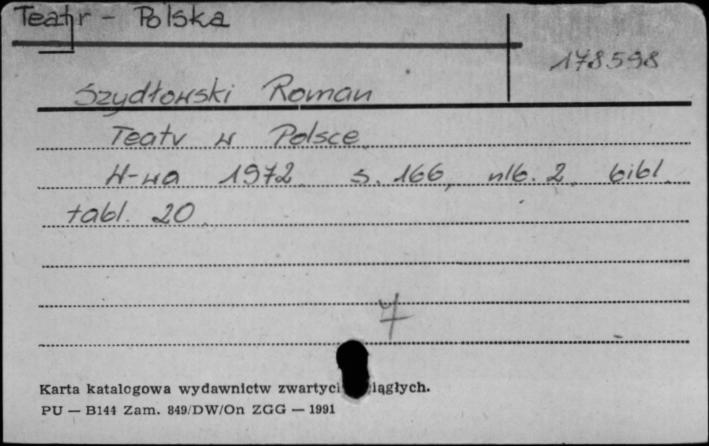 Teatr - Polska
178598
Szydłowski Roman
Teatr w Polsce
W-wa 1972 s. 166, nlb. 2, bibl.
tabl. 20
7
Karta katalogowa wydawnictw zwartyc iągłych.
PU — B144 Zam. 849/DW/On ZGG — 1991